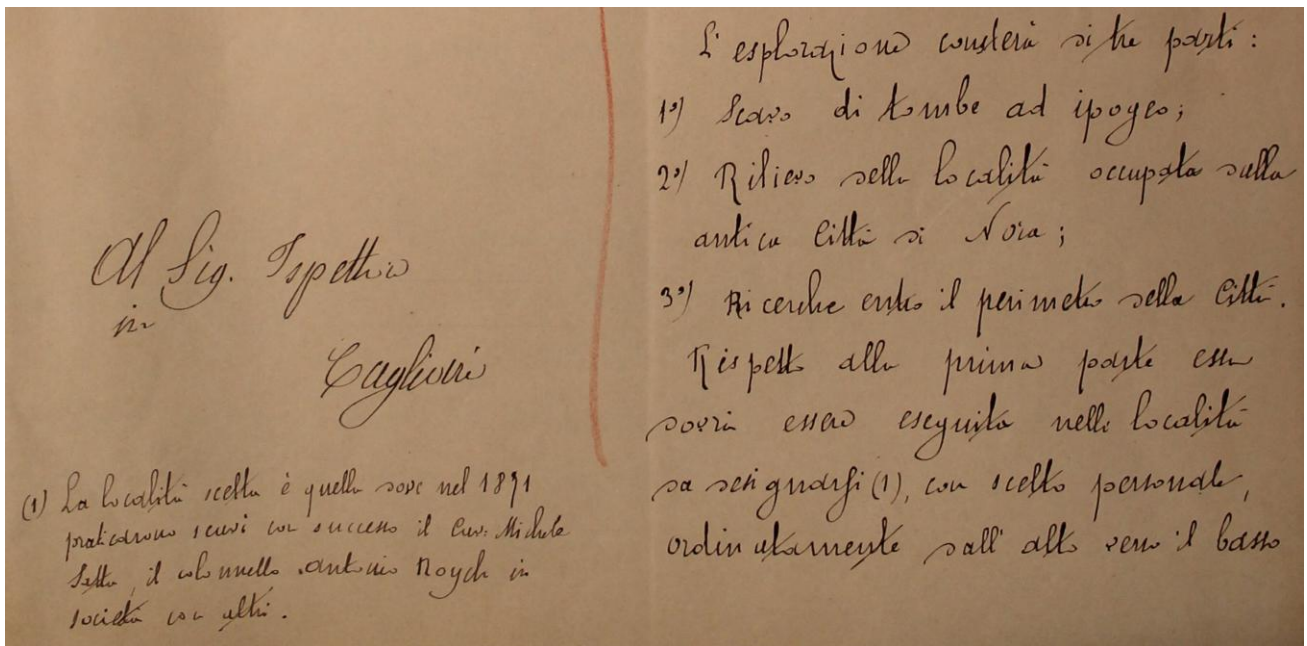 Al Sig. Ispettore
in
Cagliari
(1) La località scelta è quella dove nel 1891
praticarono scavi con successo il Cav: Michele
Satta, il colonnello Antonio Roych in
società con altri.
L'esplorazione consterà di tre parti:
1º) Scavo di tombe ad ipogeo;
2º) Rilievo della località occupata dalla
antica Città di Nora;
3º) Ricerche entro il perimetro della Città.
Rispetto alla prima parte essa
dovrà essere eseguita nelle località
da designarsi (1), con scelto personale,
ordinatamente dall'alto verso il basso